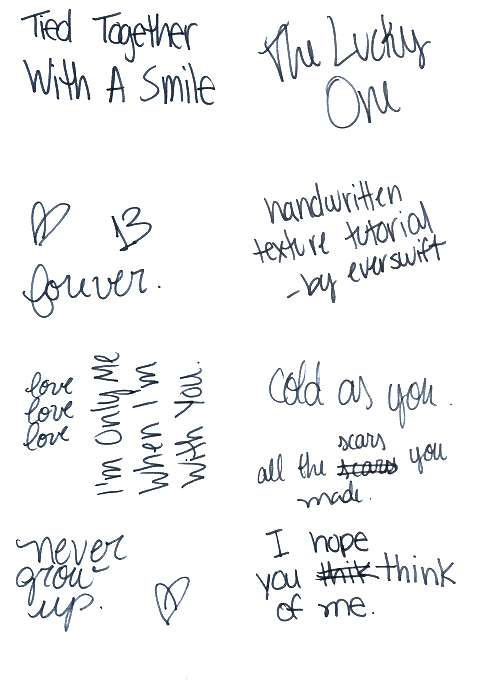 Tied Together
With A Smile
The Lucky
One
♡ 13
forever.
handwritten
texture tutorial
-by everswift
love
love
love
I'm Only Me
When I'm
With You.
cold as you.
scars
all the scars you
made.
never
grow
up.
♡
I hope
you thnik think
of me.